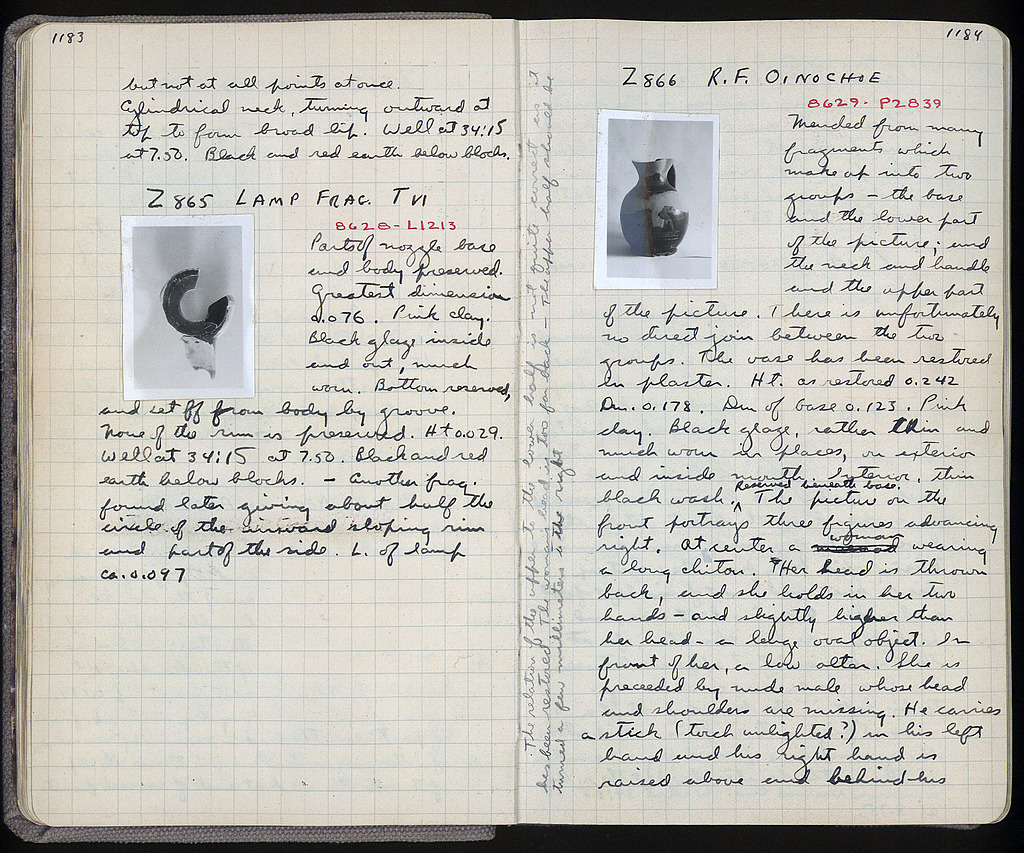 1183
but not at all points at once.
Cylindrical neck, turning outward at
top to form broad lip. Well at 34:15
at 7.50. Black and red earth below blocks.
Z 865 LAMP FRAG. T VI
8628 - L1213
Parts of nozzle base
and body preserved.
Greatest dimension
0.076. Pink clay.
Black glaze inside
and out, much
worn. Bottom reserved,
and set off from body by groove.
None of the rim is preserved. Ht 0.029.
Well at 34:15 at 7.50. Black and red
earth below blocks. - Another frag.
found later giving about half the
circle of the inward sloping rim
and part of the side. L. of lamp
ca. 0.097
1184
Z866 R.F. OINOCHOE
8629 - P2839
Mended from many
fragments which
make up into two
groups - the base
and the lower part
of the picture; and
the neck and handle
and the upper part
of the picture. There is unfortunately
no direct join between the two
groups. The vase has been restored
in plaster. Ht. as restored 0.242
Dm. 0.178. Dm of base 0.123. Pink
clay. Black glaze, rather thin and
much worn in places, on exterior
and inside mouth. Interior, thin
black wash. Reserved beneath base. The picture on the
front portrays three figures advancing
right. At center a woman wearing
a long chiton. Her head is thrown
back, and she holds in her two
hands - and slightly higher than
her head - a large oval object. In
front of her, a low altar. She is
preceded by nude male whose head
and shoulders are missing. He carries
a stick (torch unlighted?) in his left
hand and his right hand is
raised above and behind his
The relation of the upper to the lower half is not quite correct as it
has been restored. The woman's head is too far back - the upper half should be
turned a few millimeters to the right